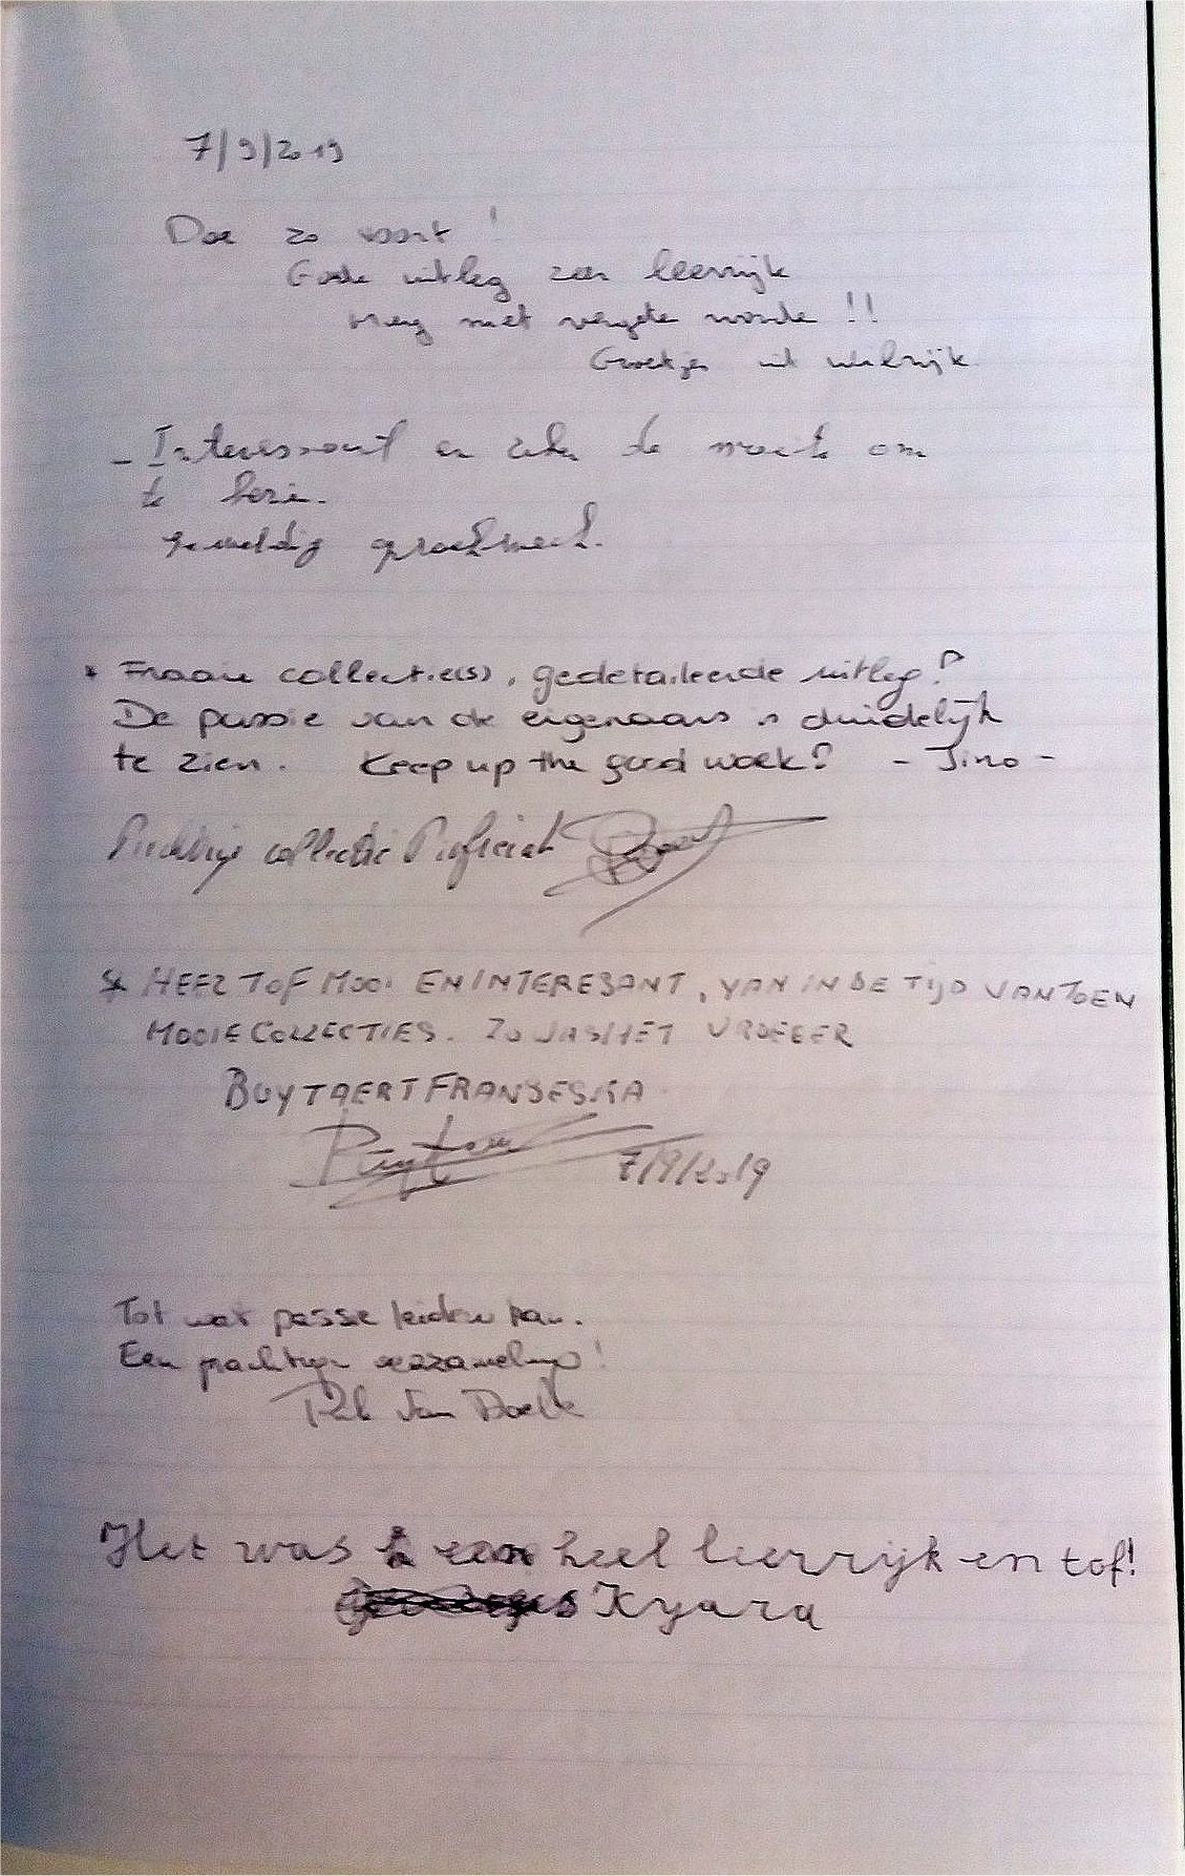 7/9/2019
Doe zo voort !
Goede uitleg zeer leerrijk
Mag niet vergete worde !!
Groetjes uit wilrijk
- Interessant en zeker de moeite om
te bezie.
geweldig
* Fraaie collectie(s), gedetaileerde uitleg!
De passie van de eigenaars is duidelijk
te zien. Keep up the good work! - Jino -
Prachtige collectie Proficiat
* HEEL TOF MOOI EN INTERESANT, VAN IN DE TIJD VAN TOEN
MOOIE COLLECTIES. ZO WAS HET VROEGER
BUYTAERT FRANSESKA
7/9/2019
Tot wat passie leiden kan.
Een prachtige verzameling!
Van
Het was een heel leerrijk en tof!
Kyara